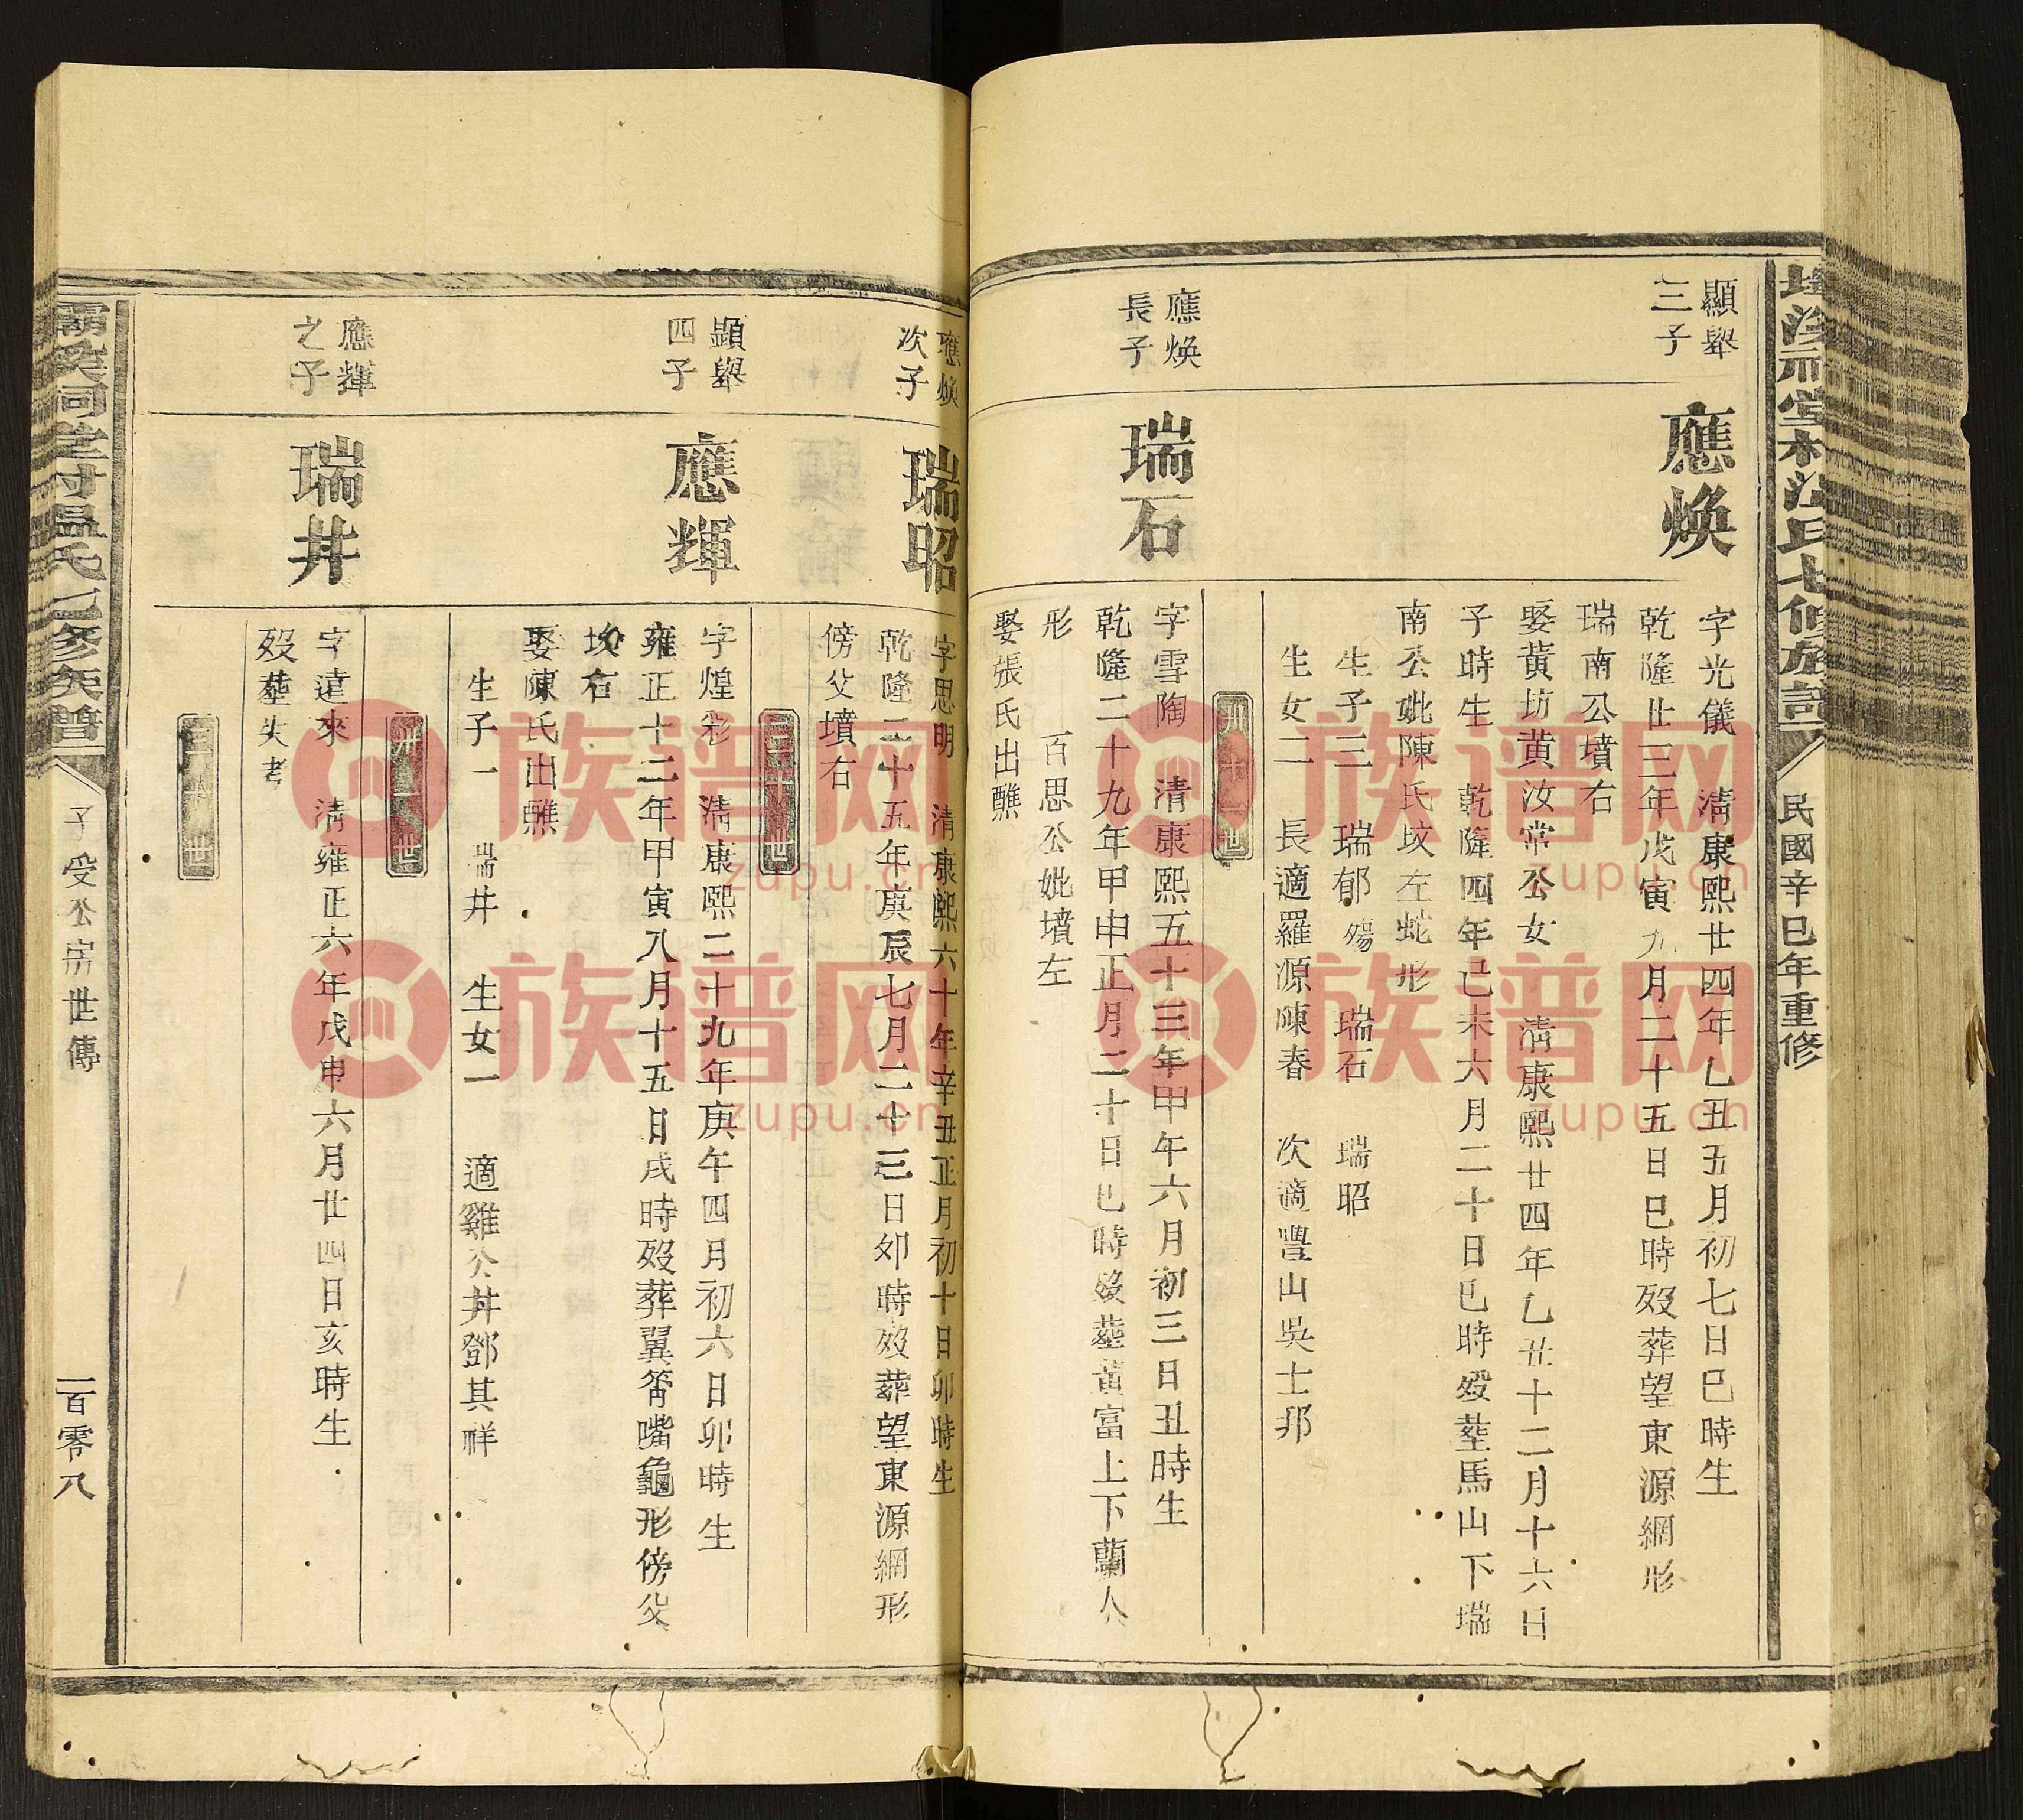 民國辛巳年重修
顯舉
三子
應煥
字光儀　清康熙廿四年乙丑五月初七日巳時生
乾隆廿三年戊寅九月二十五日巳時歿葬望東源網形
瑞南公墳右
娶黄坊黄汝常公女　清康熙廿四年乙丑十二月十六日
子時生　乾隆四年己未六月二十日巳時歿塟馬山下瑞
南公妣陳氏坟左蛇形
生子三　瑞郁殤　瑞石　瑞昭
生女二　長適羅源陳春　次適豐山吳士邦
應煥
長子
瑞石
字雪陶　清康熙五十三年甲午六月初三日丑時生
乾隆二十九年甲申正月二十日巳時歿塟黄富上下蘭人
形　百思公妣墳左
娶張氏出醮
應煥
次子
瑞昭
字思明　清康熙六十年辛丑正月初十日卯時生
乾隆二十五年庚辰七月二十三日卯時歿葬望東源網形
傍父墳右
顯舉
四子
應輝
字煌彩　清康熙二十九年庚午四月初六日卯時生
雍正十二年甲寅八月十五日戌時歿葬翼膋嘴龜形傍父
坟右
娶陳氏出醮
生子一　瑞井　生女一　適雞公井鄧其祥
應輝
之子
瑞井
字達來　清雍正六年戊申六月廿四日亥時生
歿塟失考
祠堂村溫氏七修族譜
子受公房世傳
一百零八
族谱网
zupu.cn
族谱网
zupu.cn
族谱网
zupu.cn
族谱网
zupu.cn